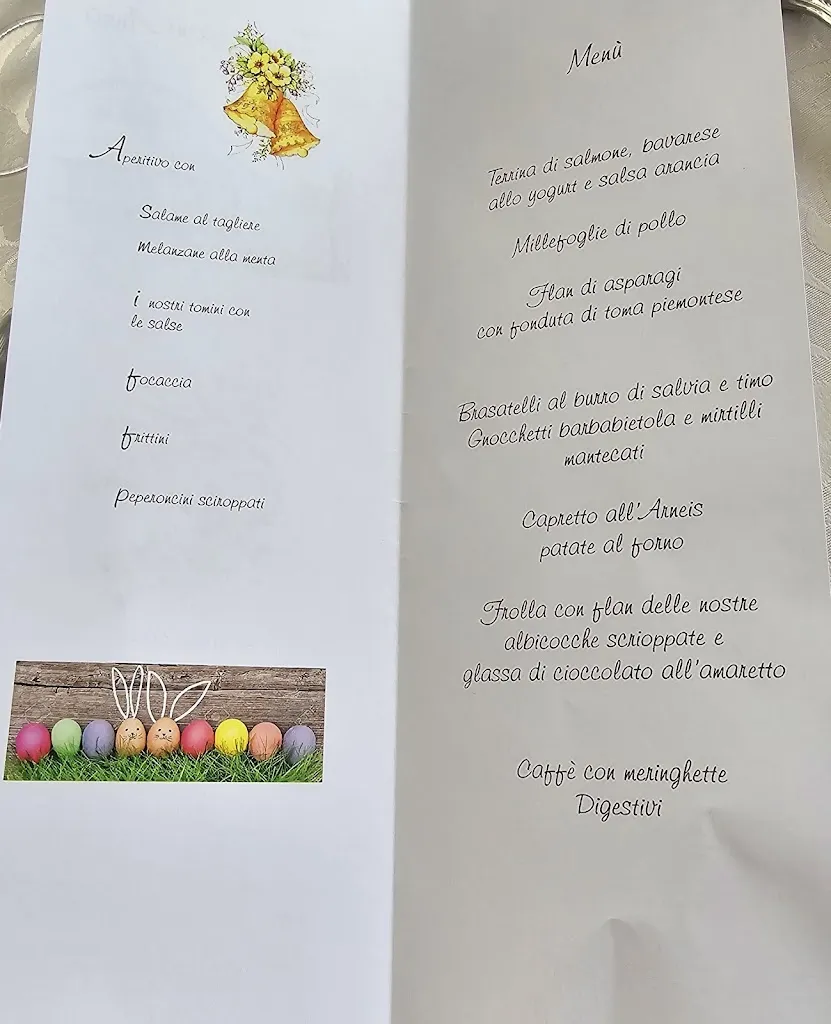 Aperitivo con
Salame al tagliere
Melanzane alla menta
i nostri tomini con
le salse
focaccia
frittini
Peperoncini sciroppati
Menù
Terrina di salmone, bavarese
allo yogurt e salsa arancia
Millefoglie di pollo
Flan di asparagi
con fonduta di toma piemontese
Brasatelli al burro di salvia e timo
Gnocchetti barbabietola e mirtilli
mantecati
Capretto all'Arneis
patate al forno
Frolla con flan delle nostre
albicocche scrioppate e
glassa di cioccolato all'amaretto
Caffè con meringhette
Digestivi